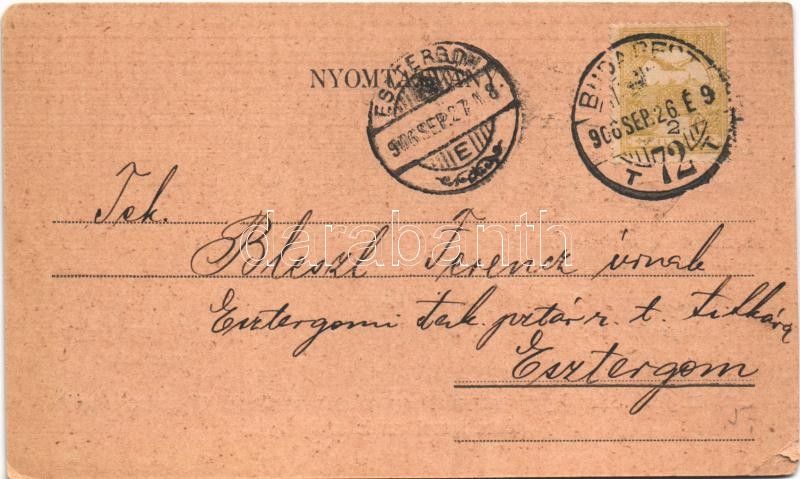 ESZTERGOM
906 SEP. 27. N 8
E
BUDAPEST
906 SEP. 26. É 9
2
T 72 T
Tek.
darabanth
Bleszl Ferencz úrnak
Esztergomi tak. pztár r. t. titkára
Esztergom
5.